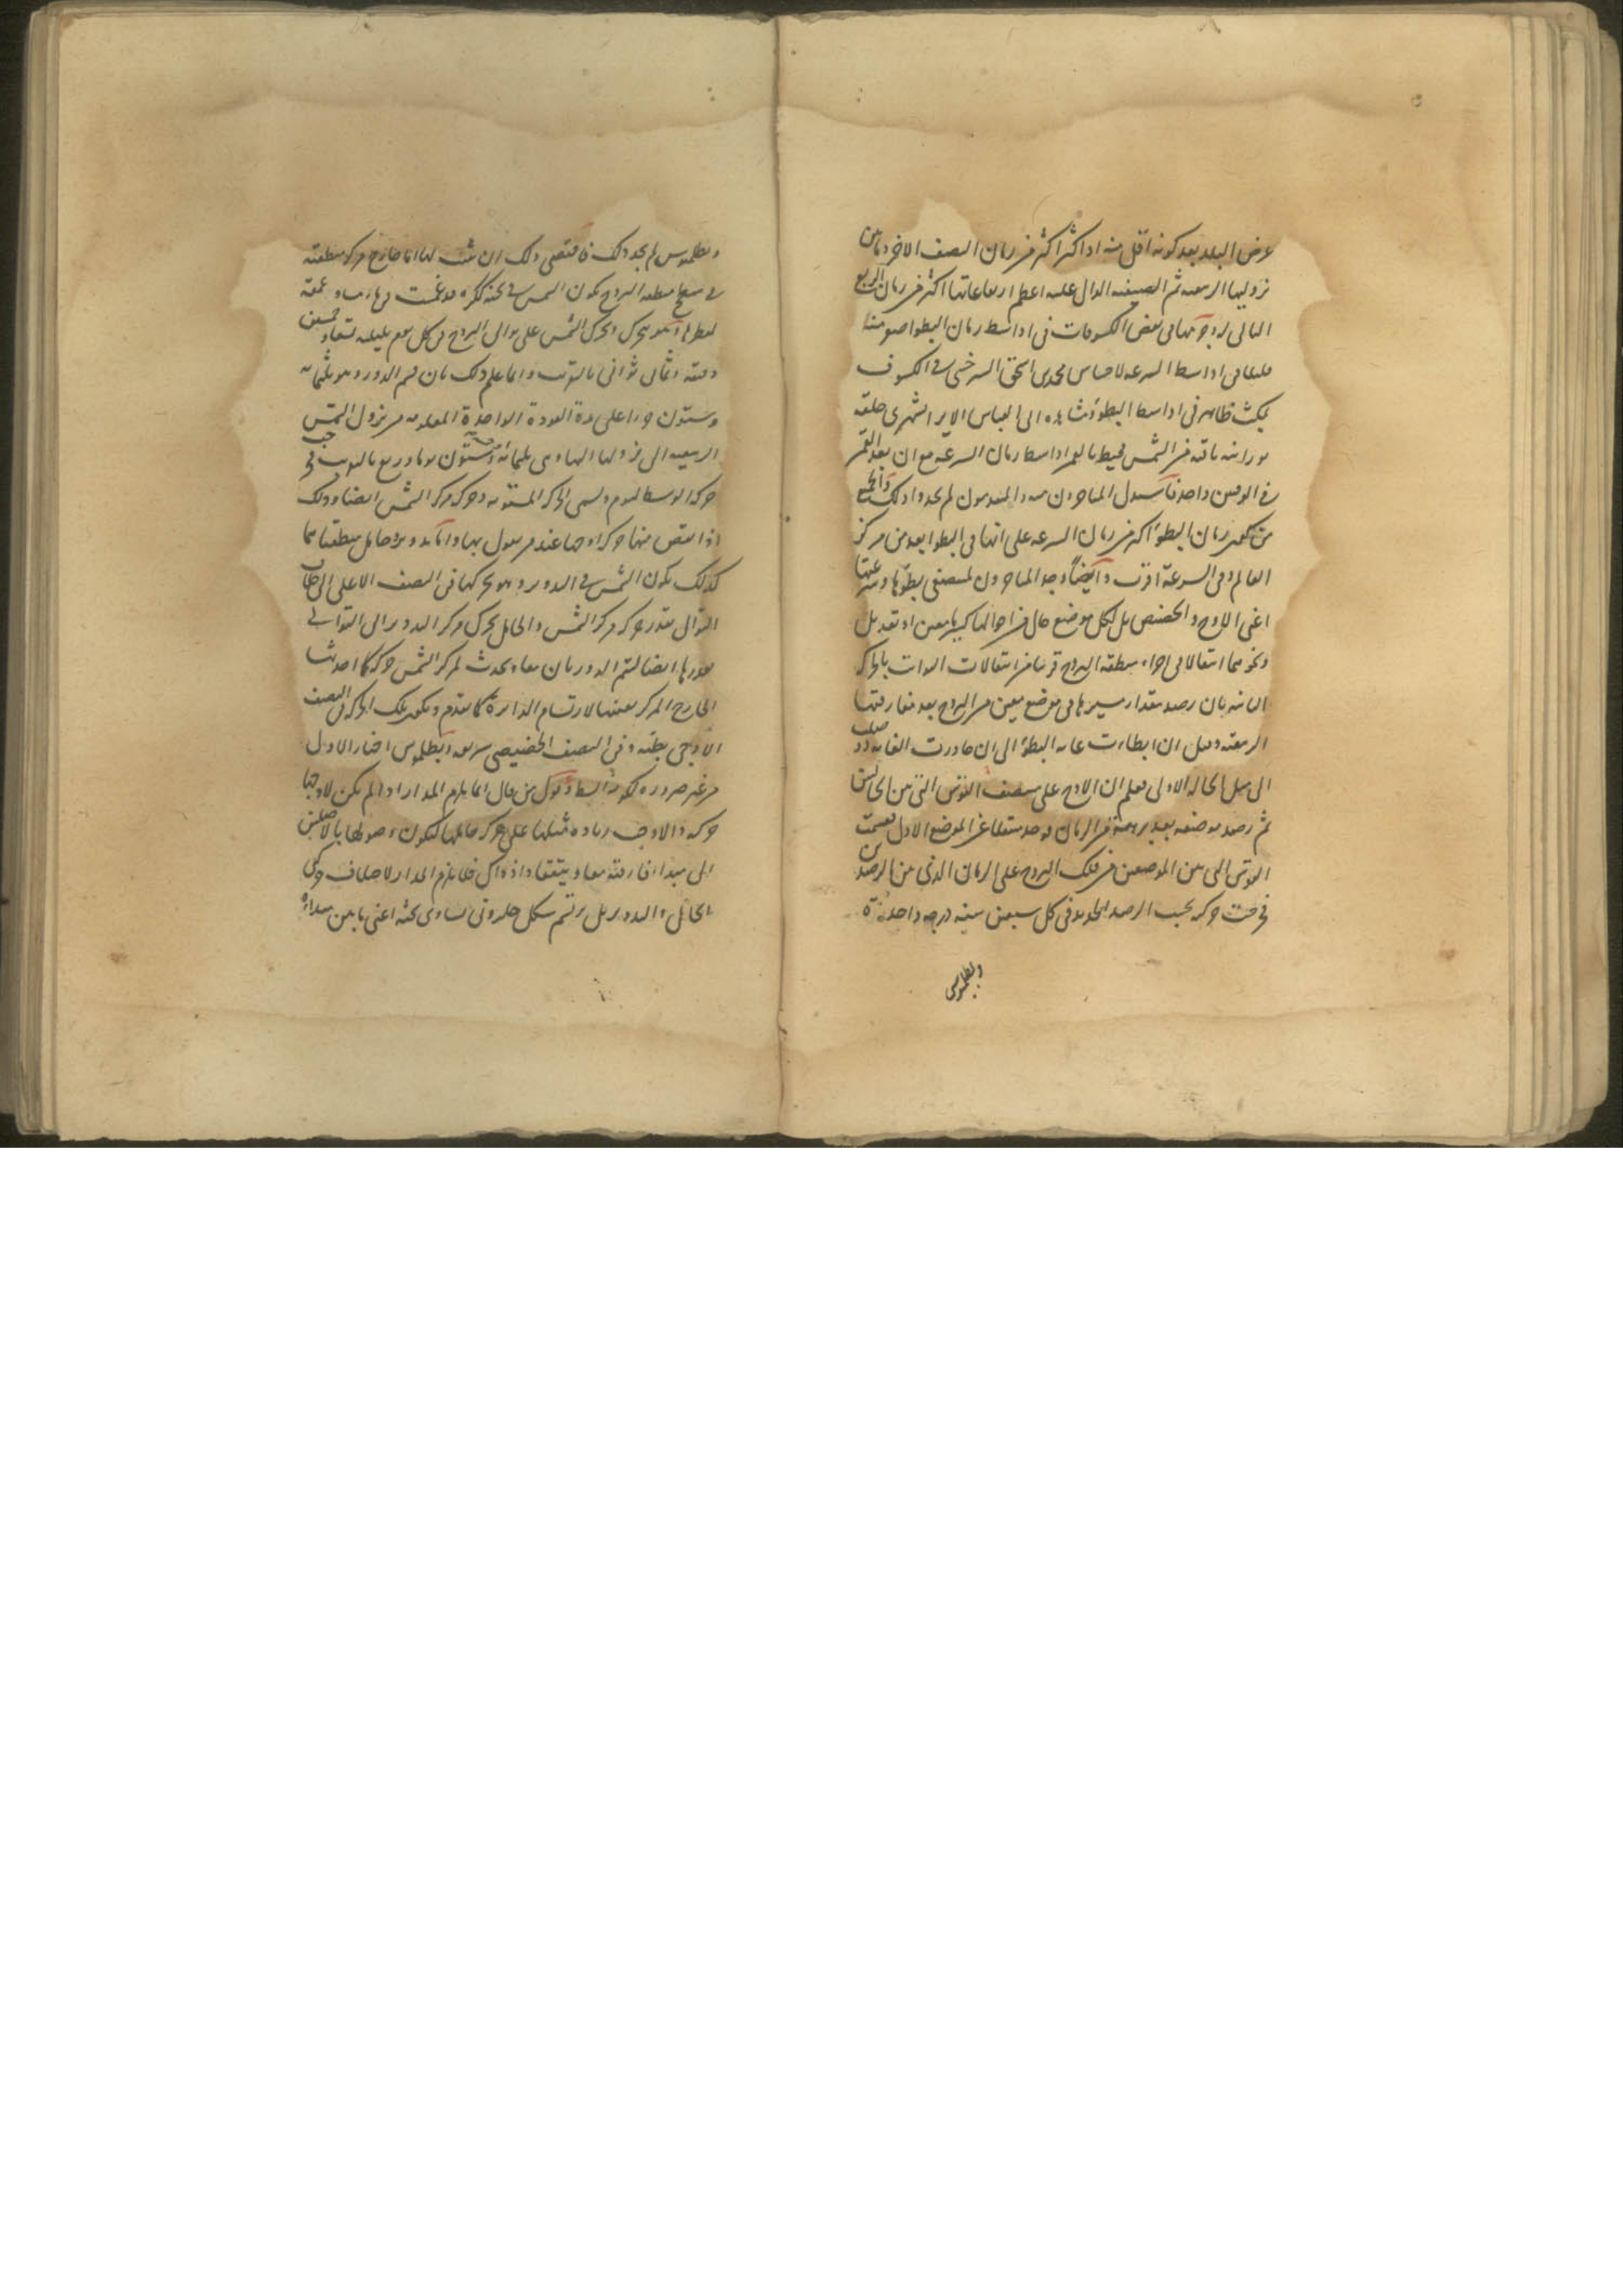 عرض البلد بعد كونه اقل منه او اكثر اكثر من زمان النصف الاخر وما بين
نزوليها الربيعية ثم الصيفية الدال عليه اعظم ارتفاعاتها اكثر من زمان الربع
التالى له وجرمها فى بعض الكسوفات فى اواسط زمان البطؤ اصغر منه
فى اواسط السرعة لا محمد بن اسحق السرخسى فى الكسوف
مكث ظاهر فى اواسط البطؤ وشاهد ابى العباس الايرانشهرى حلقة
نورانية باقية من الشمس محيطة بالقمر اواسط زمان السرعة مع ان بعد القمر
فى الوقتين واحد المتاخرون والمتقدمون لم يجدوا ذلك والجميع
من كون زمان البطؤ اكثر من زمان السرعة على انها فى البطؤ ابعد من مركز
العالم وفى السرعة اقرب وايضا وجد المتاخرون لمنتصفى بطؤها وسرعتها
اعنى الاوج والحضيض بل لكل موضع حال من احوالها معين او تعديل
ونحوهما انتقالا فى اجزاء منطقة البروج قريبا من انتقالات الثوابت بالحركة
الثانية بان رصد مقدار سيرها فى موضع معين من البروج بعد مفارقتها
الربيعية وقبل ان ابطات غاية البطؤ الى ان جاوزت الغاية
الى مثل الحالة الاولى فعلم ان الاوج على منتصف القوس التى بين الحالتين
ثم رصد موضعه بعد برهة من الزمان فوجد منتقلا عن الموضع الاول فقسمت
القوس التى بين الموضعين من فلك البروج على الزمان الذى بين الرصدين
فخرجت حركته بحسب الرصد الجديد فى كل سبعين سنة درجة واحدة
وبطلميوس
وبطلميوس لم يجد ذلك فاقتضى ذلك ان يثبت لها اما خارج مركز منطقته
فى سطح منطقة البروج تكون الشمس فى ثخنه ككرة قد غمست فيه يساوى عمقه
لقطرها وهو يتحرك ويحرك الشمس على توالى البروج فى كل يوم بليلته تسعا وخمسين
دقيقة وثمان ثوانى بالتقريب وانما علم ذلك بان قسم الدور وهو ثلثمائة
وستون جزءا على مدة العودة الواحدة المعلومة من نزول الشمس
الربيعية الى نزولها اليها وهى ثلثمائة وخمسة وستون يوما وربع بالتقريب فخرجت
حركة الوسط لليوم وتسمى الحركة المستوية وحركة مركز الشمس ايضا وذلك
اذا نقص منها حركة اوجها عند من يقول بها واما تدوير وحامل منطقتاهما
كذلك تكون الشمس فى التدوير وهو يحركها فى النصف الاعلى الى خلاف
التوالى بقدر حركة مركز الشمس والحامل يحرك مركز التدوير الى التوالى
بقدرها ايضا ليتم الدوران معا ويحدث لمركز الشمس حركة كما احدثها
الخارج المركز بعينها لارتسام الدائرة كما تقدم وتكون تلك الحركة فى النصف
الاوجى بطيئة وفى النصف الحضيضى سريعة وبطلميوس اختار الاول
من غير ضرورة لكونه ابسط وقول من قال انما يلزم المدار اذا لم يكن لاوجها
حركة والاوجب زيادة مثلها على حركة حاملها لتكون وصولها بالاصلين
الى مبدا المفارقة معا ويتفقا واذ ذاك فلا يلزم المدار لاختلاف حركتى
الحامل والتدوير بل يرتسم شكل حلزونى يساوى ثخنه اعنى ما بين مبداه